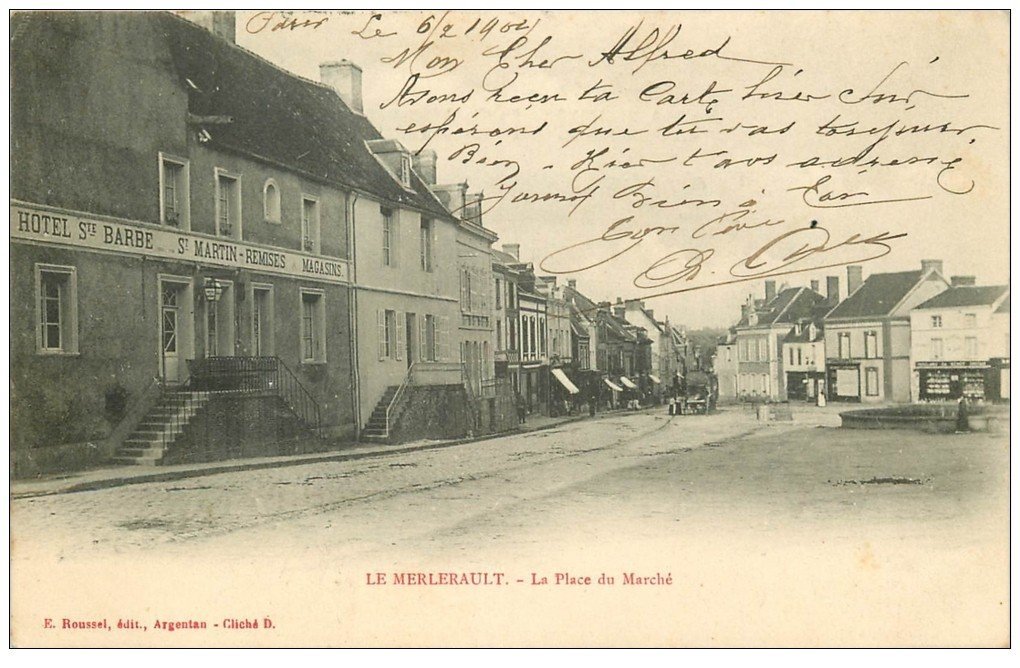 Paris Le 6/2 1904
Mon Cher Alfred
Avons reçu ta Carte hier Soir
espérant que tu vas toujours
Bien - Hier t'avs adressé
Journal Bien à
Ton Père
HOTEL STE BARBE ST MARTIN-REMISES & MAGASINS
LE MERLERAULT. - La Place du Marché
E. Roussel, édit., Argentan - Cliché D.